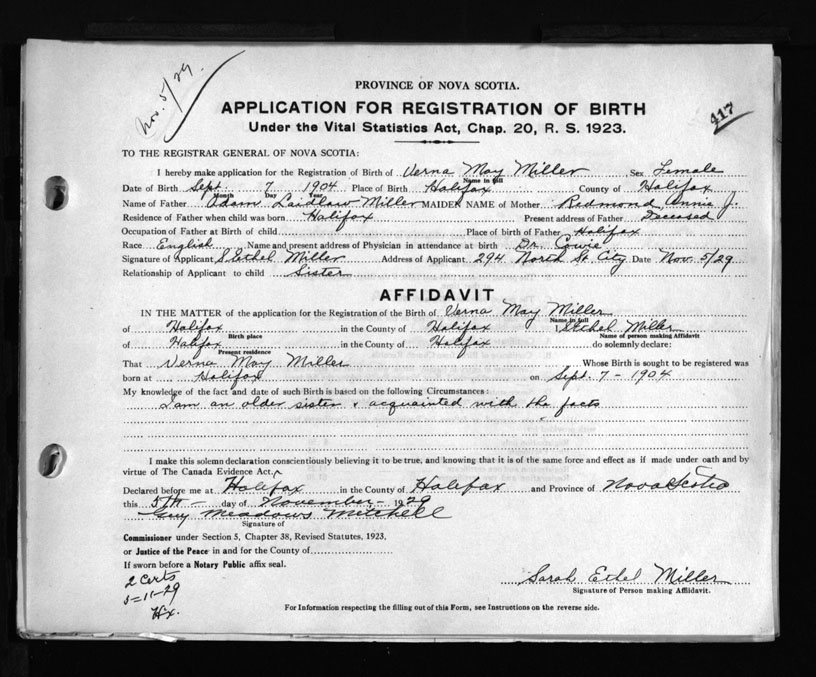 Nov. 5/29.
PROVINCE OF NOVA SCOTIA.
APPLICATION FOR REGISTRATION OF BIRTH
417
Under the Vital Statistics Act, Chap. 20, R. S. 1923.
TO THE REGISTRAR GENERAL OF NOVA SCOTIA:
I hereby make application for the Registration of Birth of Verna May Miller Sex Female
Name in full
Date of Birth Sept. 7 1904 Place of Birth Halifax County of Halifax
Month Day Year
Name of Father Adam Laidlaw Miller MAIDEN NAME of Mother Redmond Annie J.
Residence of Father when child was born Halifax Present address of Father Deceased
Occupation of Father at Birth of child Place of birth of Father Halifax
Race English Name and present address of Physician in attendance at birth Dr. Cowie
Signature of Applicant S. Ethel Miller Address of Applicant 294 North St. City Date Nov. 5/29
Relationship of Applicant to child Sister
AFFIDAVIT
IN THE MATTER of the application for the Registration of the Birth of Verna May Miller
Name in full
of Halifax in the County of Halifax I, S. Ethel Miller
Birth place Name of person making Affidavit
of Halifax in the County of Halifax do solemnly declare:
Present residence
That Verna May Miller Whose Birth is sought to be registered was
born at Halifax on Sept. 7 - 1904
My knowledge of the fact and date of such Birth is based on the following Circumstances:
I am an older sister & acquainted with the facts
I make this solemn declaration conscientiously believing it to be true, and knowing that it is of the same force and effect as if made under oath and by
virtue of The Canada Evidence Act.
Declared before me at Halifax in the County of Halifax and Province of Nova Scotia
this 5th day of November 1929
Guy Meadows Mitchell
Signature of
Commissioner under Section 5, Chapter 38, Revised Statutes, 1923,
or Justice of the Peace in and for the County of
If sworn before a Notary Public affix seal.
2 Certs
5-11-29
Hx.
Sarah Ethel Miller
Signature of Person making Affidavit.
For Information respecting the filling out of this Form, see Instructions on the reverse side.